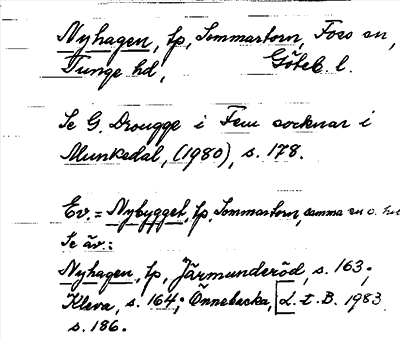 Nyhagen, tp, Sommartorn, Foss sn,
Tunge hd, Göteb. l.
Se G. Drougge i Fem socknar i
Munkedal, (1980), s. 178.
Ev. = Nybygget, tp, Sommartorn, samma sn o. hd
Se äv.:
Nyhagen, tp, Järmunderöd, s. 163;
Kleva, s. 164; Önnebacka, [L. t. B. 1983
s. 186.